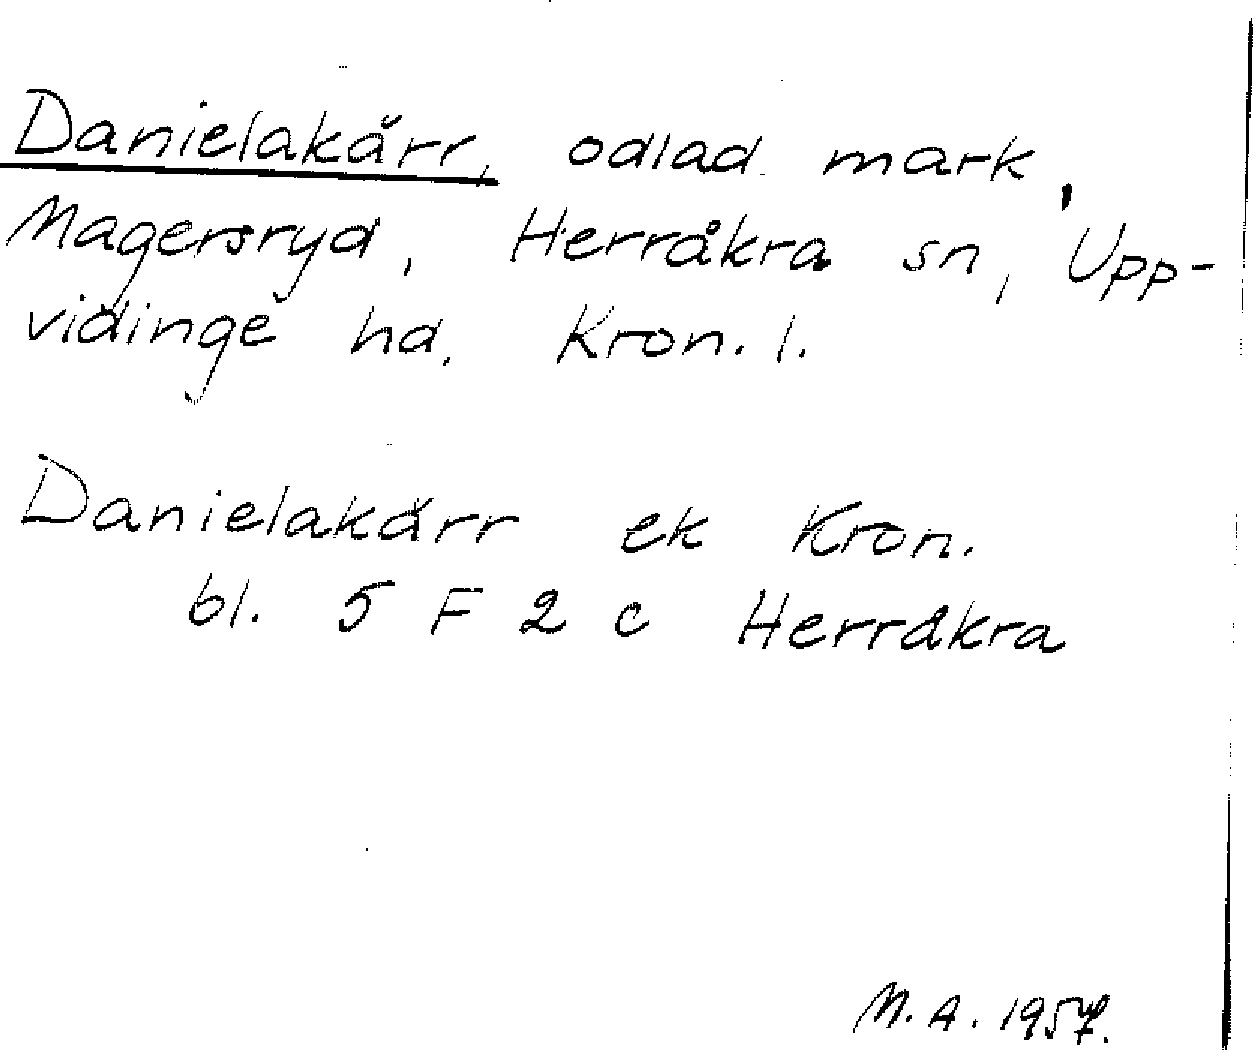 Danielakärr, odlad mark,
Magersryd, Herråkra sn, Upp-
vidinge hd, Kron. l.
Danielakärr ek Kron.
bl. 5 F 2 c Herråkra
M.A. 1957.